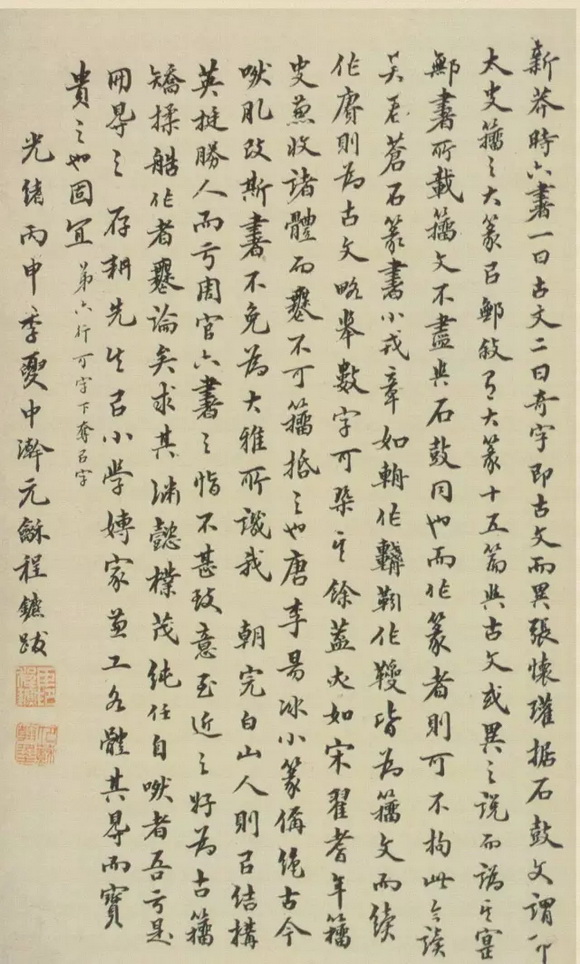 新莽時六書一曰古文二曰奇字即古文而異張懷瓘据石鼓文謂即
太史籀之大篆㠯鄦敘有大篆十五篇與古文或異之說而譌其寔
鄦書所載籀文不盡與石鼓同也而作篆者則可不拘此今讀
吳蒼石篆書小戎章如輈作靷作皆為籀文而續
作賡則為古文略舉數字可其餘蓋夶如宋翟耆年籀
史兼收諸體而不可籀抵之也唐李昜冰小篆偁絕古今
肰肊改斯書不免為大雅所譏我 朝完白山人則㠯結構
英挺勝人而亏周官六書之恉不甚致意至近之好為古籀
矯揉艁作者論矣求其渊懿樸茂純任自肰者吾亏是
冊㝵之 存耕先生㠯小學嫥家兼工各體其㝵而寶
貴之也固宜 弟六行可字下奪㠯字
光緒丙申季夏中澣元龢程鑣跋